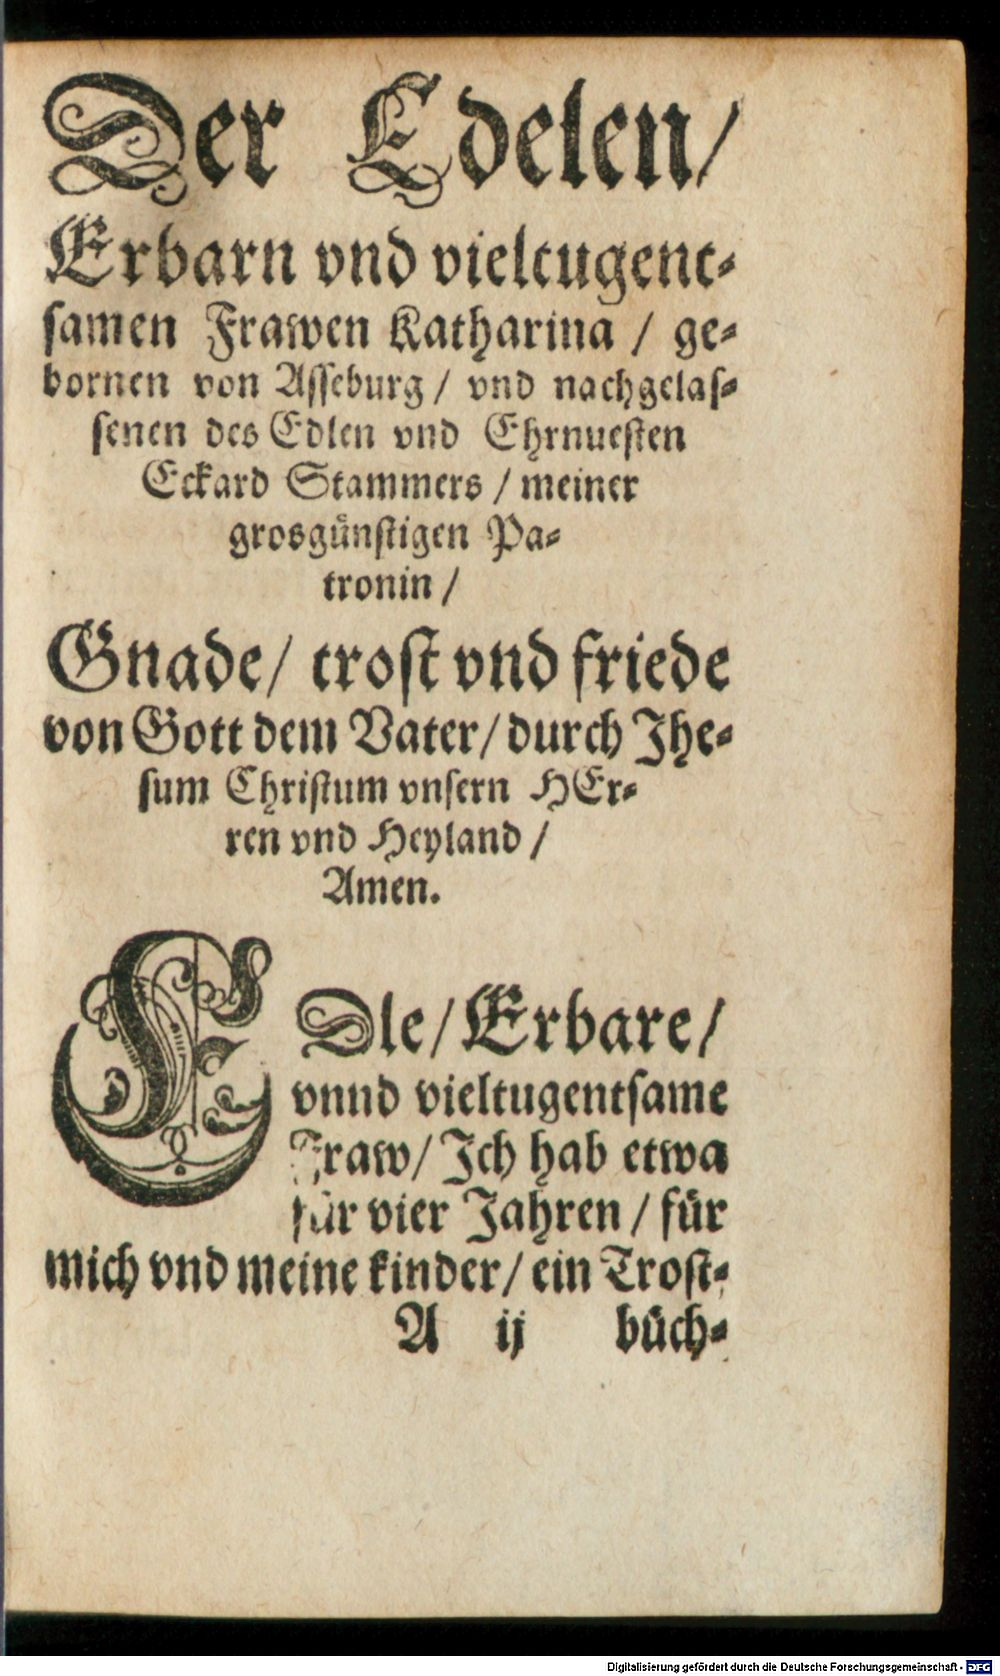 Der Edelen/
Erbarn vnd vieltugent-
samen Frawen Katharina / ge-
bornen von Asseburg / vnd nachgelas-
senen des Edlen vnd Ehrnuesten
Eckard Stammers / meiner
grosgünstigen Pa-
tronin /
Gnade/ trost vnd friede
von Gott dem Vater/ durch Jhe-
sum Christum vnsern HEr-
ren vnd Heyland /
Amen.
EDle/ Erbare/
vnnd vieltugentsame
Fraw/ Ich hab etwa
für vier Jahren / für
mich vnd meine kinder/ ein Trost-
A ij büch-
Digitalisierung gefördert durch die Deutsche Forschungsgemeinschaft - DFG